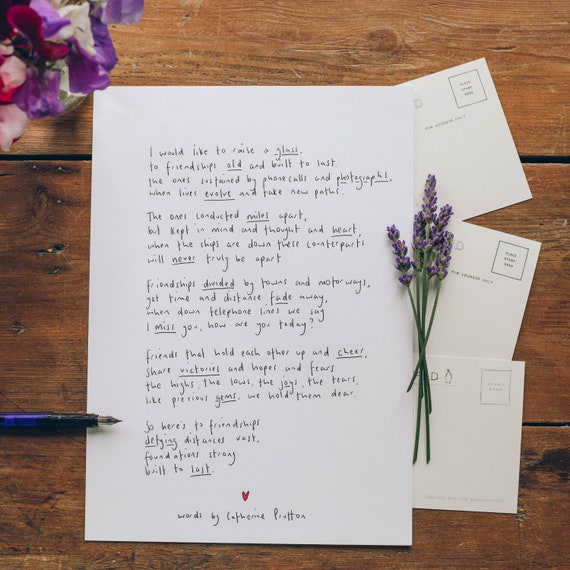 I would like to raise a glass,
to friendships old and built to last.
the ones sustained by phonecalls and photographs,
when lives evolve and take new paths.
The ones conducted miles apart,
but kept in mind and thought and heart,
when the ships are down these counterparts
will never truly be apart
friendships divided by towns and motorways,
yet time and distance fade away,
when down telephone lines we say
I miss you, how are you today?
friends that hold each other up and cheer,
share victories and hopes and fears
the highs, the lows, the joys, the tears.
like precious gems. we hold them dear.
So here's to friendships
defying distances vast,
foundations strong
built to last.
words by Catherine Prutton
PLACE
STAMP
HERE
FOR ADDRESS ONLY
D
PLACE
STAMP
HERE
FOR ADDRESS ONLY
D